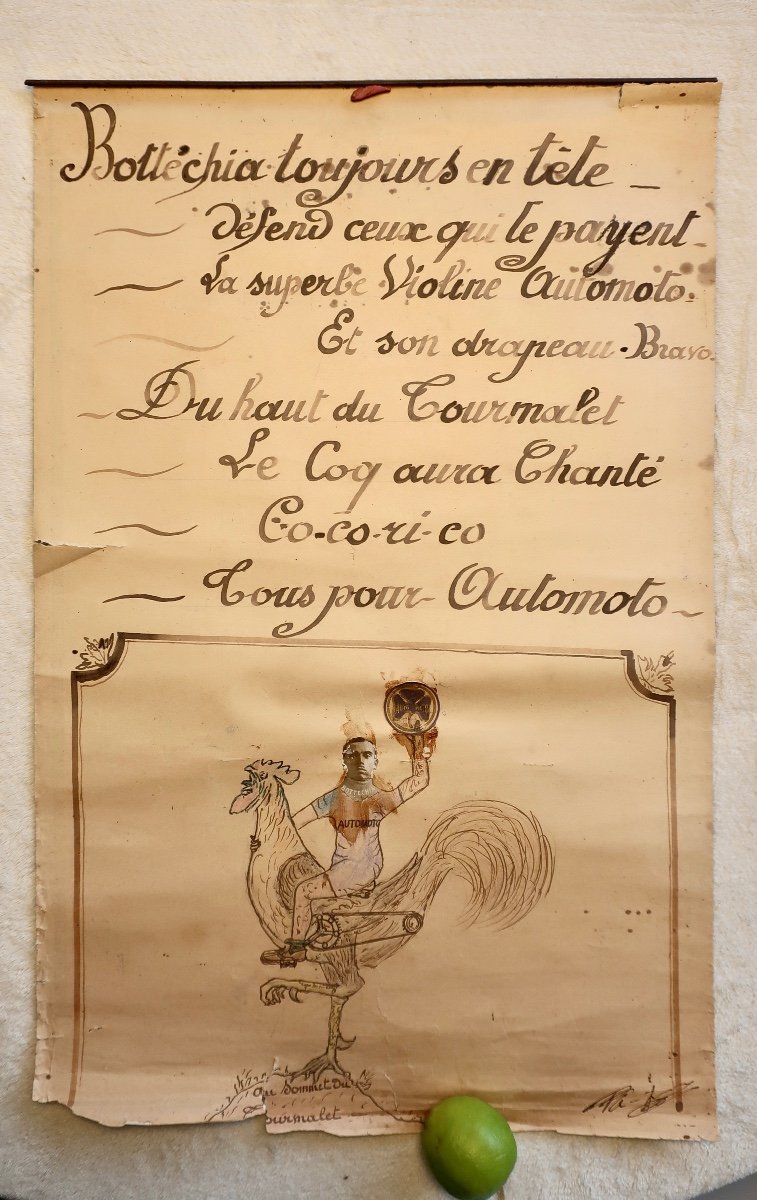 Bottéchia toujours en tête _
défend ceux qui le payent -
La superbe Violine Automoto.
Et son drapeau. Bravo.
Du haut du Tourmalet
Le Coq aura Chanté
Co-co-ri-co
Tous pour - Automoto
BOTTECHIA
AUTOMOTO
au Sommet Du
Tourmalet